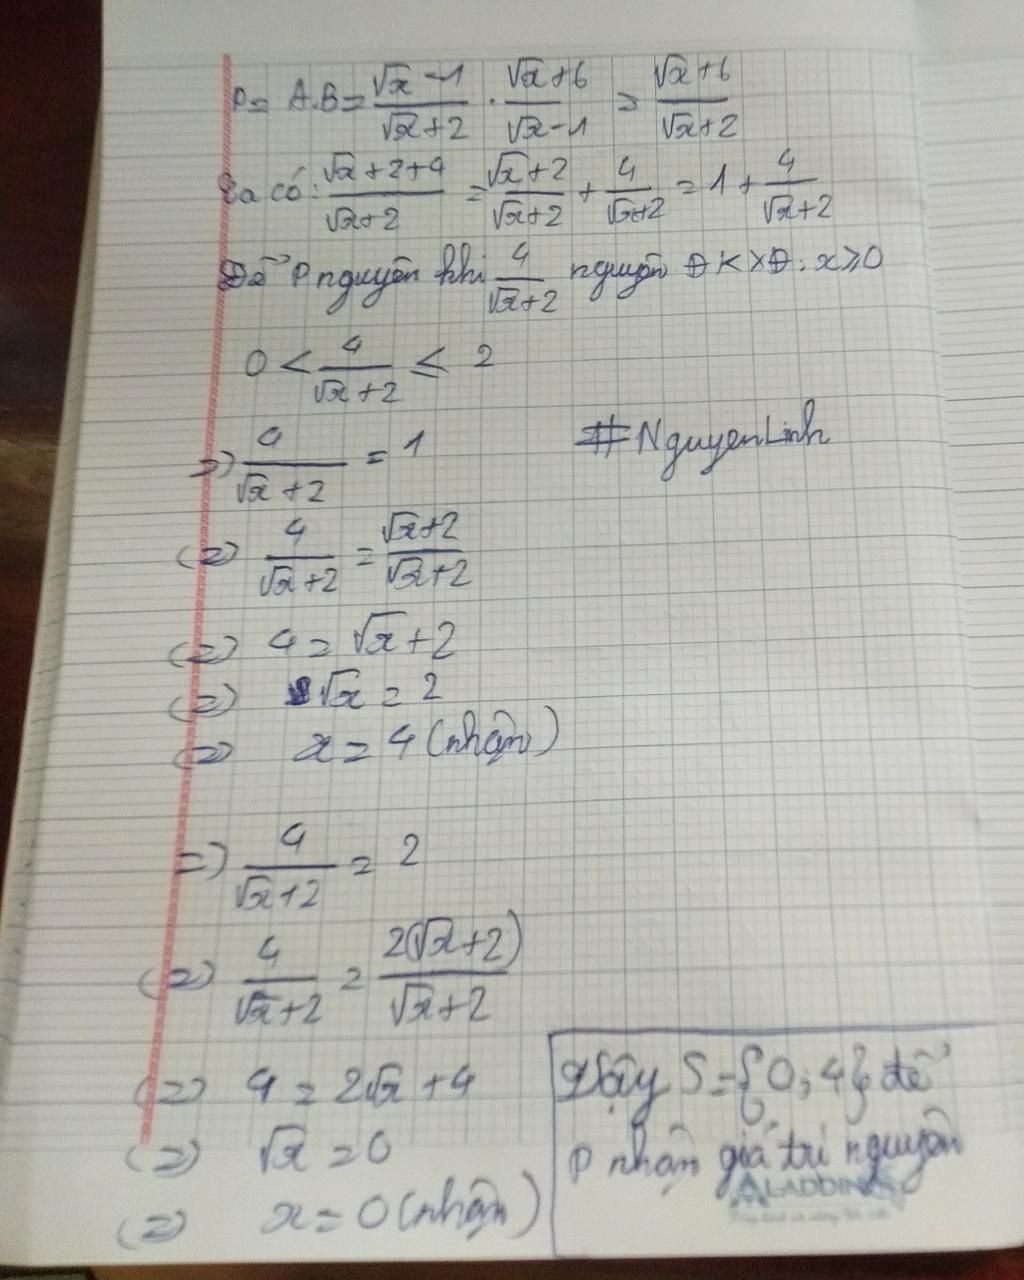 P = A.B = \frac{\sqrt{x} - 1}{\sqrt{x} + 2} . \frac{\sqrt{x} + 6}{\sqrt{x} - 1} = \frac{\sqrt{x} + 6}{\sqrt{x} + 2}
Ta có: \frac{\sqrt{x} + 2 + 4}{\sqrt{x} + 2} = \frac{\sqrt{x} + 2}{\sqrt{x} + 2} + \frac{4}{\sqrt{x} + 2} = 1 + \frac{4}{\sqrt{x} + 2}
Để P nguyên khi \frac{4}{\sqrt{x} + 2} nguyên ĐKXĐ: x ≥ 0
0 < \frac{4}{\sqrt{x} + 2} ≤ 2
=> \frac{4}{\sqrt{x} + 2} = 1
#NguyenLinh
(=) \frac{4}{\sqrt{x} + 2} = \frac{\sqrt{x} + 2}{\sqrt{x} + 2}
(=) 4 = \sqrt{x} + 2
(=) \sqrt{x} = 2
(=) x = 4 (nhận)
=> \frac{4}{\sqrt{x} + 2} = 2
(=) \frac{4}{\sqrt{x} + 2} = \frac{2(\sqrt{x} + 2)}{\sqrt{x} + 2}
(=) 4 = 2\sqrt{x} + 4
(=) \sqrt{x} = 0
(=) x = 0 (nhận)
Vậy S = {0; 4} để
P nhận giá trị nguyên
ALADDIN